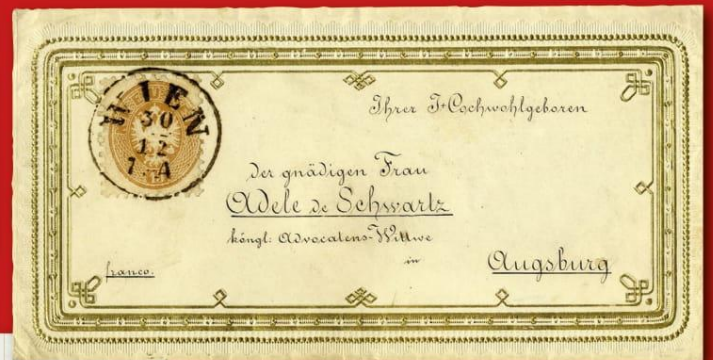 WIEN
30
12
7. A
Ihrer I. Hochwohlgeboren
der gnädigen Frau
Adele de Schwartz
königl: Advocatens-Wittwe
in
franco.
Augsburg